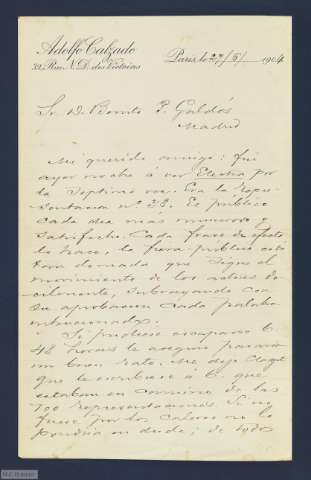 Adolfo Calzado
32, Rue N. D. des Victoires
Paris, le 27/6/1904
Sr D. Benito P. Galdós
Madrid
Mi querido amigo: fuí
ayer noche á ver Electra por
la septima vez. Era la repre-
sentacion nº 38. El público
cada dia más numeroso y
satisfecho. Cada frase de efecto
lo hace, la fiera público está
tan domada que sigue el
movimiento de los actores do-
cilmente, subrayando con
su aprobacion cada palabra
intencionada.
Si pudiese escaparse V.
48 horas le aseguro pasaria
un buen rato. Me dijo
que le escribiese á V. que
estaban en camino de las
100 representaciones. Si no
fuese por los calores no lo
pondria en duda; de todos